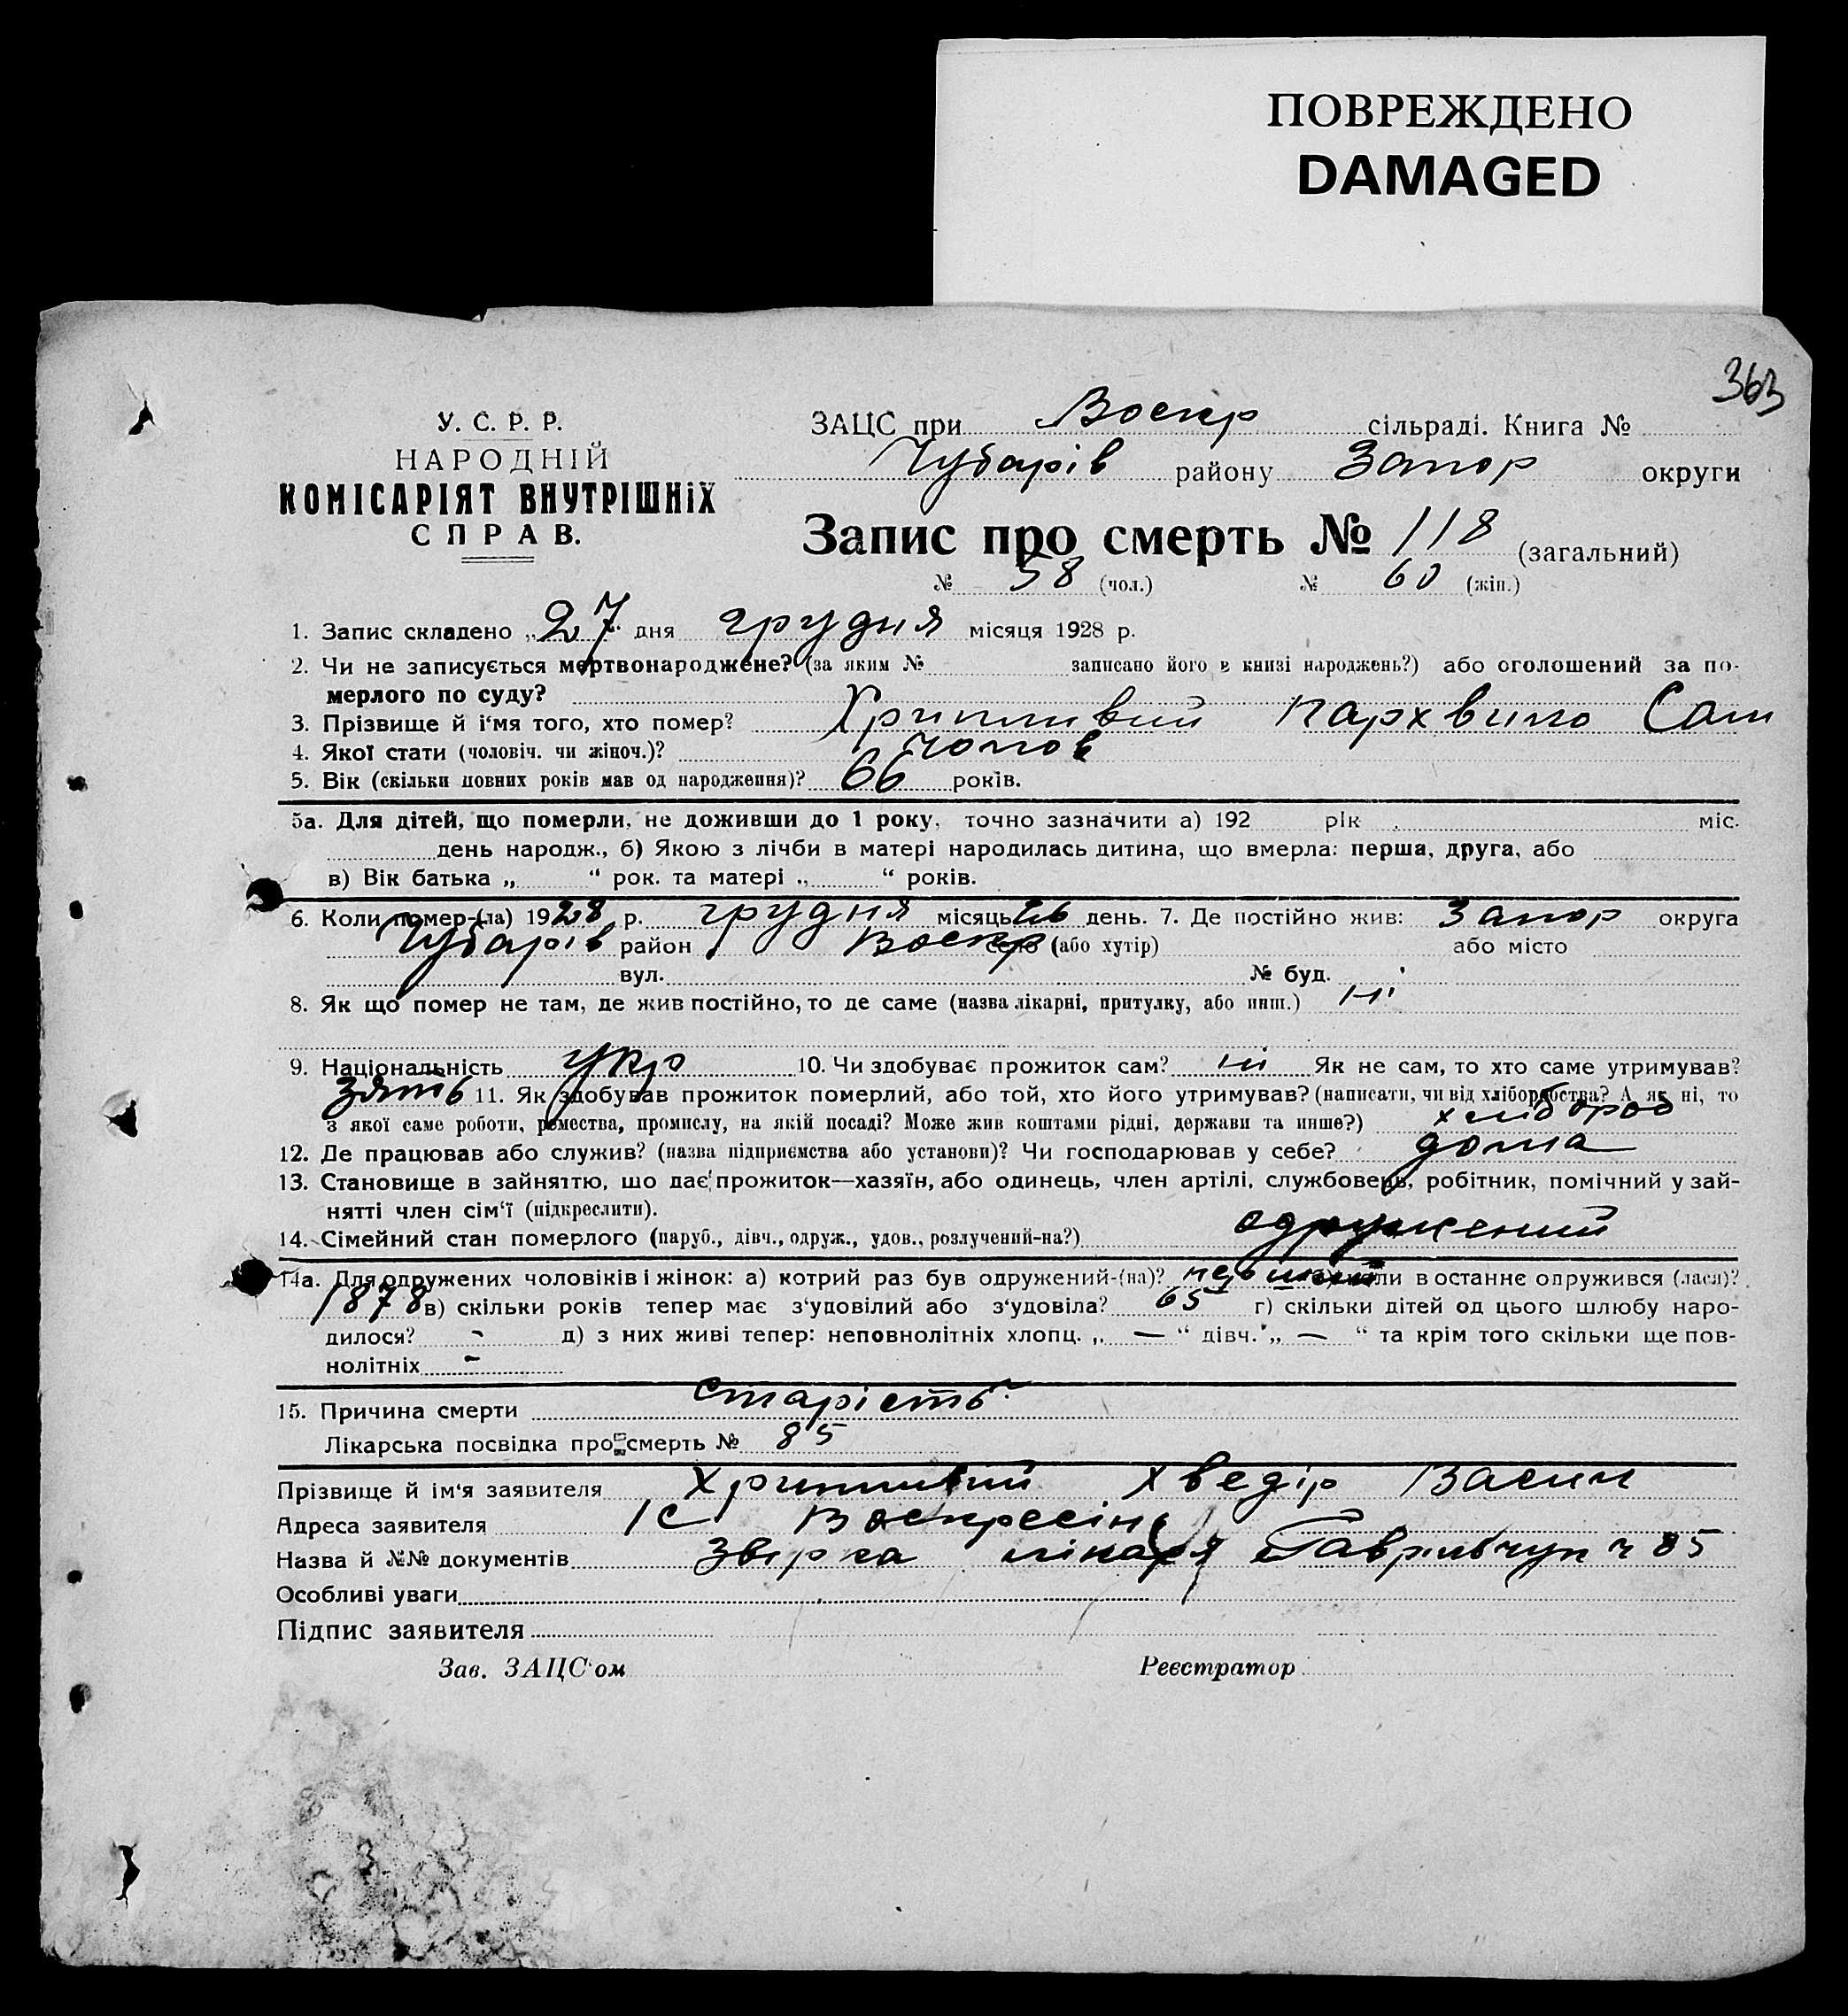 ПОВРЕЖДЕНО
DAMAGED
363
У. С. Р. Р.
НАРОДНІЙ
КОМІСАРІЯТ ВНУТРІШНІХ
СПРАВ.
ЗАЦС при Воскр сільраді. Книга №
Чубарів району Запор округи
Запис про смерть № 118 (загальний)
№ 58 (чол.) № 60 (жін.)
1. Запис складено „27" дня грудня місяця 1928 р.
2. Чи не записується мертвонароджене? (за яким № записано його в книзі народжень?) або оголошений за по-
мерлого по суду?
3. Прізвище й і'мя того, хто помер? Хрипливий Пархвило Сам
4. Якої стати (чоловіч. чи жіноч.)? чолов
5. Вік (скільки повних років мав од народження)? 66 років.
5а. Для дітей, що померли, не доживши до 1 року, точно зазначити а) 192 рік міс.
день народж., б) Якою з лічби в матері народилась дитина, що вмерла: перша, друга, або
в) Вік батька „ “ рок. та матері „ “ років.
6. Коли помер-(ла) 1928 р. грудня місяць 26 день. 7. Де постійно жив: Запор округа
Чубарів район Воскр село (або хутір) або місто
вул. № буд.
8. Як що помер не там, де жив постійно, то де саме (назва лікарні, притулку, або инш.) ні
9. Національність укр 10. Чи здобуває прожиток сам? ні Як не сам, то хто саме утримував?
зять 11. Як здобував прожиток померлий, або той, хто його утримував? (написати, чи від хліборобства? А як ні, то
з якої саме роботи, ремества, промислу, на якій посаді? Може жив коштами рідні, держави та инше?) хлібороб
12. Де працював або служив? (назва підприємства або установи)? Чи господарював у себе? дома
13. Становище в зайняттю, що дає прожиток—хазяїн, або одинець, член артілі, службовець, робітник, помічний у зай-
нятті член сім'ї (підкреслити).
14. Сімейний стан померлого (паруб., дівч., одруж., удов., розлучений-на?) одружений
14а. Для одружених чоловіків і жінок: а) котрий раз був одружений-(на)? первий б) коли в останнє одружився (лася)?
1878 в) скільки років тепер має з'удовілий або з'удовіла? 65 г) скільки дітей од цього шлюбу наро-
дилося? - д) з них живі тепер: неповнолітніх хлопц. „ — “ дівч. „ — “ та крім того скільки ще пов-
нолітніх -
15. Причина смерти старість
Лікарська посвідка про смерть № 85
Прізвище й ім'я заявителя Хрипливий Хведір Васил
Адреса заявителя с Воскресін
Назва й №№ документів лікаря Гаврильчук ч 85
Особливі уваги
Підпис заявителя
Зав. ЗАЦС'ом Реєстратор